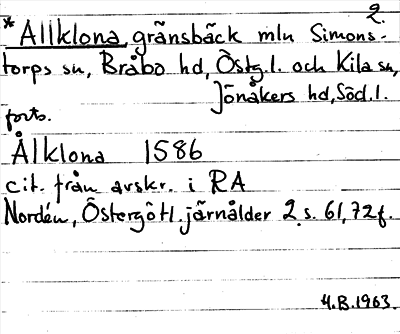 2.
*Allklona gränsbäck mln Simons-
torps sn, Bråbo hd, Östg.l. och Kila sn,
Jönåkers hd, Söd.l.
forts.
Ålklona 1586
cit. från avskr. i RA
Nordén, Östergötl. järnålder 2 s. 61, 72 f.
H.B. 1963.